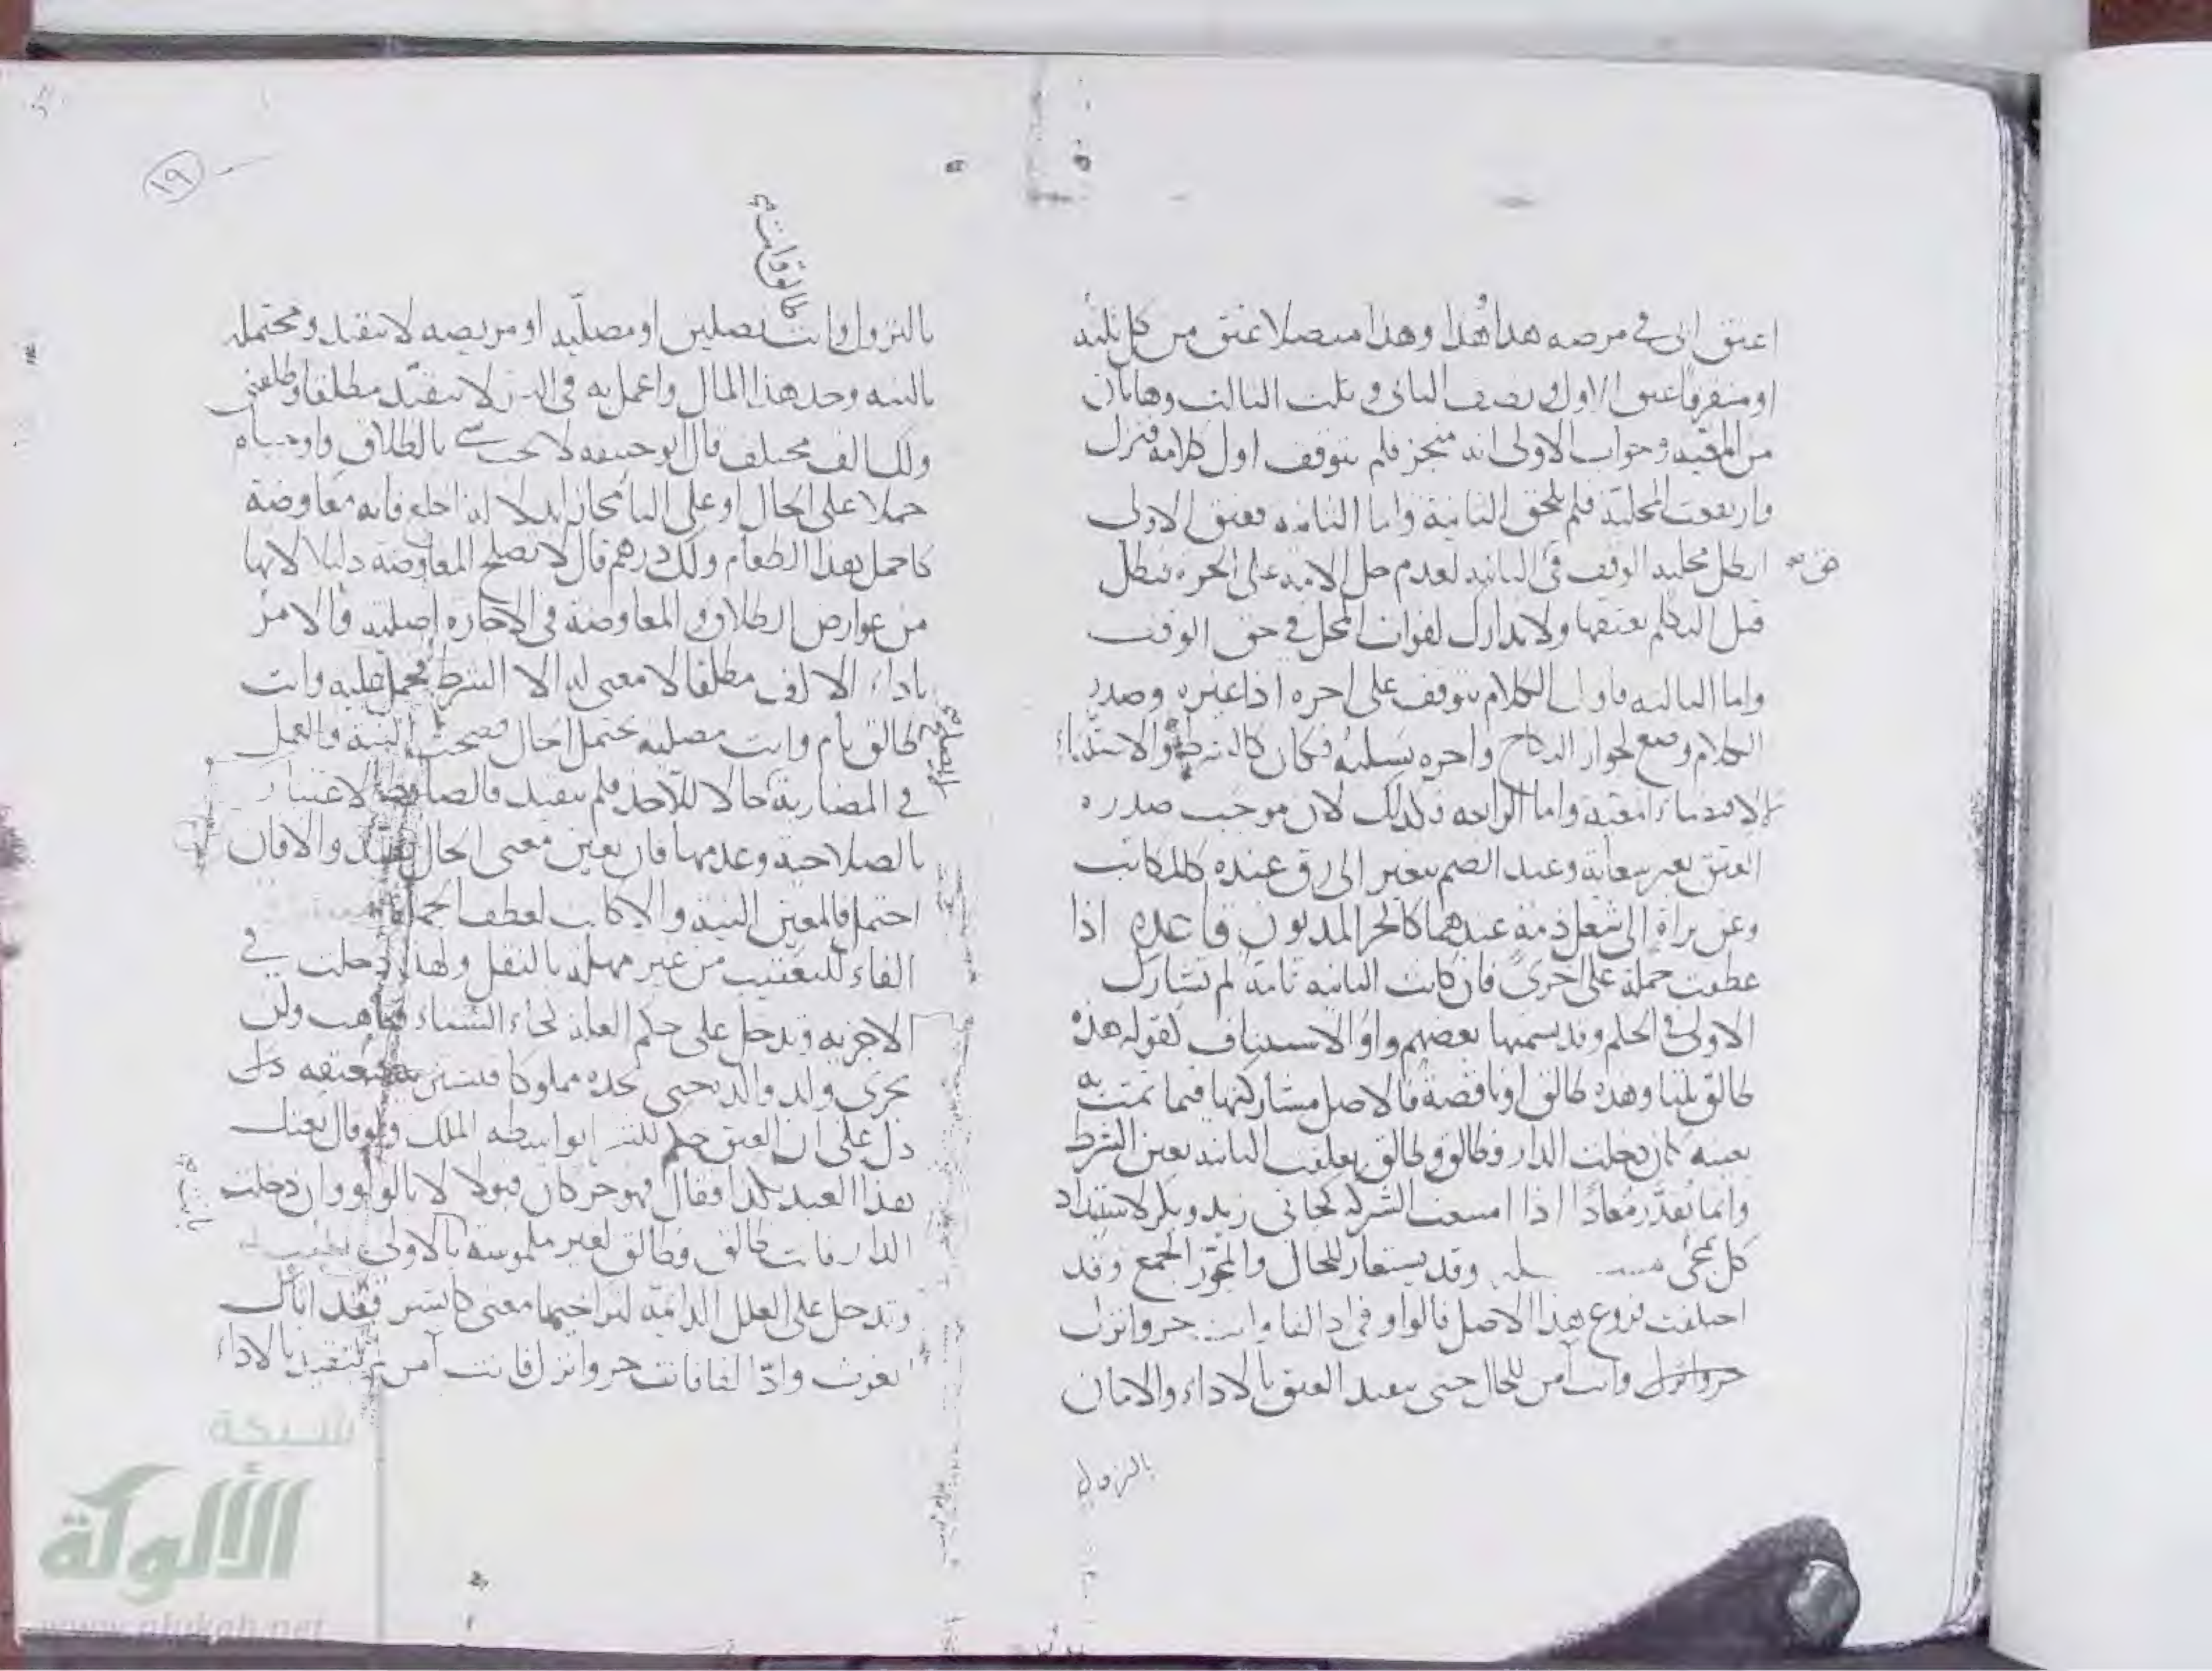 اعتق ابى فى مرضه هذا وهذا وهذا متصلا عتق من كل ثلثه
او متفرقا عتق الاول ونصف الثانى وثلث الثالث وهاتان
من المعية وجواب الاولى انه منجز فلم يتوقف اول كلامه فنزل
وارتفعت المحلية فلم تلحق الثانية واما الثانية فعتق الاولى
ابطل محلية الوقف فى الثانية لعدم حل الامة على الحرة فبطل
قبل التكلم بعتقها ولا تدارك لفوات المحل فى حق الوقف
واما الثالثة فاول الكلام يتوقف على اخره اذا غيره وصدر
الكلام وضع لجواز النكاح واخره يسلبه فكان كالشرط والاستثناء
لاقتضاء المعية واما الرابعة فكذلك لان موجب صدره
العتق بغير سعاية وعند الضم يتغير الى رق عنده كالمكاتب
وعن براة الى شغل ذمة عندهما كالحر المديون قاعدة اذا
عطفت جملة على اخرى فان كانت الثانية تامة لم تشارك
الاولى فى الحكم وقد يسميها بعضهم واو الاستيناف كقوله هذه
طالق ثلثا وهذه طالق او ناقصة فالاصل مشاركتها فيما تمت به
بعينه كان دخلت الدار فطالق وطالق تعلقت الثانية بعين الشرط
وانما يقدر معادا اذا امتنعت الشركة كجانى زيد وبكر لاستبداد
كل بمجئ وقد يستعار للحال والمجوز الجمع وقد
اختلفت فروع هذا الاصل فالواو فى اد الفا وانت حر وانزل
وانت امن للحال حتى يتقيد العتق بالاداء والامان
بالنزول
١٩
بالنزول وانت تصلين او مصلية او مريضة لا يتقيد ومحتمله
بالنية وخذ هذا المال واعمل به فى البز لا يتقيد مطلقا وطلقنى
ولك الف مختلف قال ابو حنيفة لا يجب شئ بالطلاق واوجباه
حملا على الحال او على البا مجازا بدلالة اذا خلع فانه معاوضة
كاحمل هذا الطعام ولك درهم قال لا تصلح المعاوضة دليلا لانها
من عوارض الطلاق والمعاوضة فى الاجارة اصلية والامر
باداء الالف مطلقا لا معنى له الا الشرط فحمل عليه وانت
طالق تام وانت مصلية يحتمل الحال فصحت النية والعمل
فى المضاربة حالا للاخذ فلم يتقيد فالضابط الاعتبار
بالصلاحية وعدمها فان تعين معنى الحال تقيد والا فان
احتمل فالمعين النية والا كانت لعطف الجملة
الفاء للتعقيب من غير مهلة بالنقل ولهذا دخلت فى
الاجزية وتدخل على حكم العلة كجاء الشتاء فتاهب ولن
يجزى ولد والده حتى يجده مملوكا فيشتريه فيعتقه
دل على ان العتق حكم للشرا بواسطة الملك ولو قال بعتك
هذا العبد بكذا فقال فهو حر كان قبولا لا بالواو وان دخلت
الدار فانت طالق وطالق لغير ملموسة بالاولى
وتدخل على العلل الدائمة لتراخيها معنى كابشر فقد اتاك
الغوث واد الفا فانت حر وانزل فانت آمن لم يتقيد بالاداء
شبكة
الألوكة
www.alukah.net